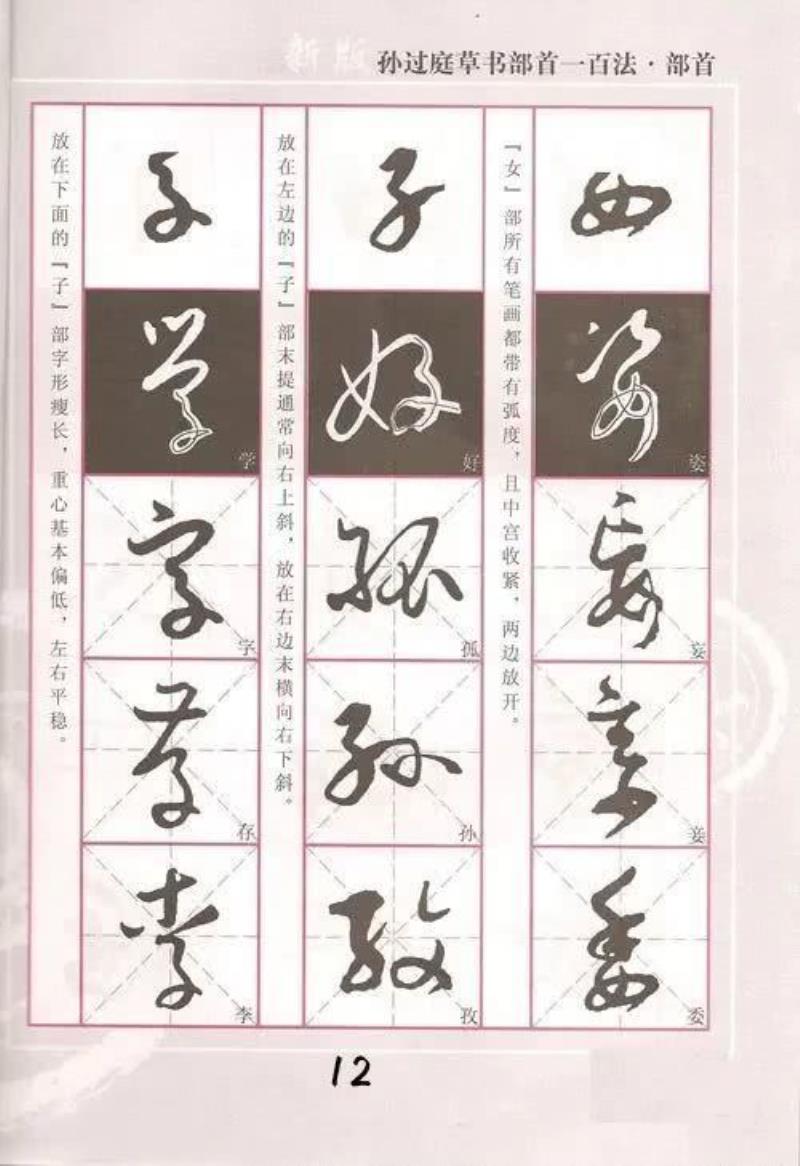 新版 孙过庭草书部首一百法·部首
『女』部所有笔画都带有弧度，且中宫收紧，两边放开。
女
姿
姿
妄
妄
妾
妾
委
委
放在左边的『子』部末提通常向右上斜，放在右边末横向右下斜。
子
好
好
孤
孤
孙
孙
孜
孜
放在下面的『子』部字形瘦长，重心基本偏低，左右平稳。
子
学
学
字
字
存
存
李
李
12